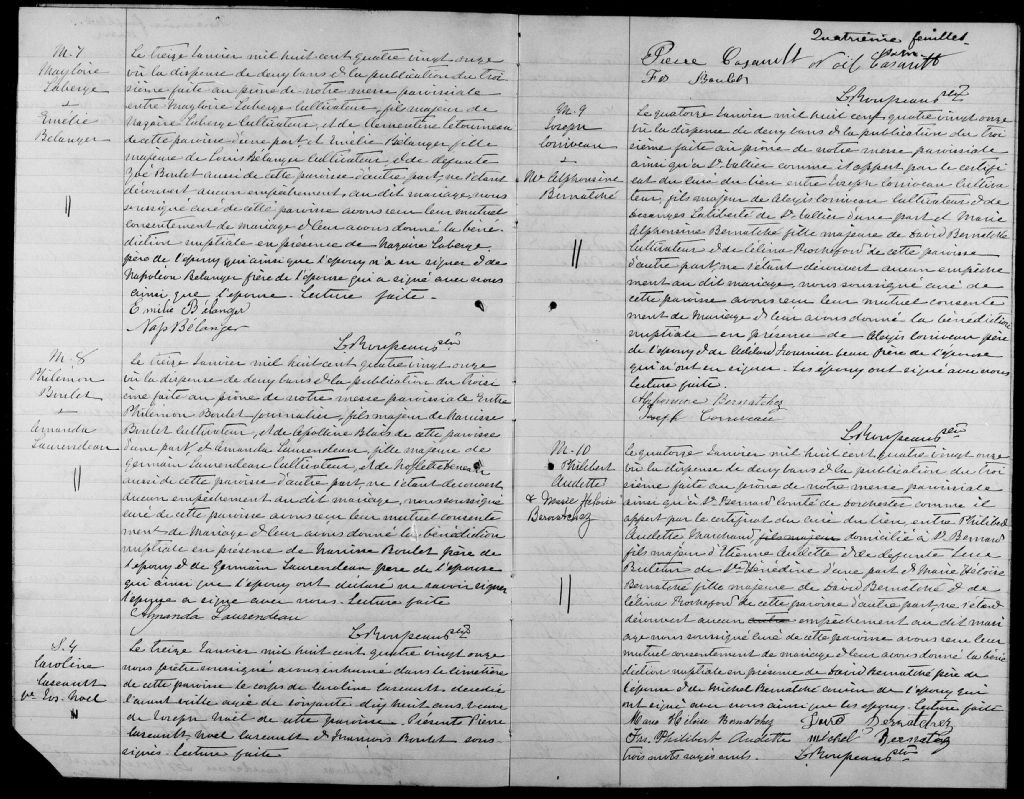 M. 7
Magloire
Laberge
+
Emélie
Bélanger
Le treize Janvier mil huit cent quatre vingt onze
vû la dispense de deux bans & la publication du troi
sième faite au prône de notre messe paroissiale
entre Magloire Laberge Cultivateur, fils majeur de
Nazaire Laberge Cultivateur, et de Clementine Letourneau
de cette paroisse d'une part et Emélie Bélanger fille
majeure de Louis Bélanger Cultivateur, & de defunte
Zoé Boulet aussi de cette paroisse d'autre part, ne s'étant
découvert aucun empêchement au dit mariage, nous
soussigné curé de cette paroisse avons reçu leur mutuel
consentement de mariage & leur avons donné la béné
diction nuptiale en présence de Nazaire Laberge
père de l'époux qui ainsi que l'époux n'a su signer & de
Napoléon Bélanger frère de l'épouse qui a signé avec nous
ainsi que l'épouse. Lecture faite.
Emilie Bélanger
Nap Bélanger
M. 8
Philemon
Boulet
+
Amanda
Laurendeau
Le treize Janvier mil huit cent quatre vingt onze
vû la dispense de deux bans & la publication du troisi
ème faite au prône de notre messe paroissiale entre
Philemon Boulet journalier, fils majeur de Narcisse
Boulet cultivateur, et de Apolline Blais de cette paroisse
d'une part, et Amanda Laurendeau, fille majeure de
Germain Laurendeau Cultivateur, et de
aussi de cette paroisse d'autre part, ne s'étant découvert
aucun empêchement au dit mariage, nous soussigné
curé de cette paroisse avons reçu leur mutuel consente
ment de Mariage & leur avons donné la bénédiction
nuptiale en présence de Narcisse Boulet père de
l'époux & de Germain Laurendeau père de l'épouse
qui ainsi que l'époux ont déclaré ne savoir signer
l'épouse a signé avec nous. Lecture faite
Amanda Laurendeau
S. 4
Caroline
Casault
Ve Jos. Noel
Le treize Janvier mil huit cent quatre vingt onze
nous prêtre soussigné avons inhumé dans le cimetière
de cette paroisse le corps de Caroline Casault décédée
l'avant veille agée de soixante dix huit ans, veuve
de Joseph Noël de cette paroisse. Présents Pierre
Casault, Noel Casault & François Boulet sous-
signés. Lecture faite
Quatrième feuillet.
Pierre Cazault Noël Casault
Frs Boulet
M. 9
Joseph
Corriveau
+
Me Alphonsine
Bernatché
Le quatorze Janvier mil huit cent quatre vingt onze
vû la dispense de deux bans & la publication du troi
sième faite au prône de notre messe paroissiale
ainsi qu'à St Vallier comme il appert par le certifi
cat du curé du lieu entre Joseph Corriveau Cultiva
teur, fils majeur de Aloyis Corriveau Cultivateur & de
Desanges Laliberté de St Vallier d'une part et Marie
Alphonsine Bernatché fille majeure de David Bernatché
Cultivateur & de Célina Rocheford de cette paroisse
d'autre part, ne s'étant découvert aucun empêche
ment au dit mariage, nous soussigné curé de
cette paroisse avons reçu leur mutuel consente
ment de Mariage & leur avons donné la bénédiction
nuptiale en présence de Aloyis Corriveau père
de l'époux & de Adélard Fournier beau frère de l'épouse
qui n'ont su signer. Les époux ont signé avec nous
Lecture faite.
Alphonsine Bernatchez
Joseph Corriveau
M. 10
Philibert
Audette
& Marie Héloïse
Bernatchez
Le quatorze Janvier mil huit cent quatre vingt onze
vû la dispense de deux bans & la publication du troi
sième faite au prône de notre messe paroissiale
ainsi qu'à St Bernard Comté de Dorchester comme il
appert par le certificat du curé du lieu, entre Philibert
Audette Marchand, fils majeur domicilié à St Bernard
fils majeur d'Etienne Audette & de defunte Luce
de Ste Hénédine d'une part & Marie Héloïse
Bernatché fille majeure de David Bernatché & de
Célina Rocheford de cette paroisse d'autre part, ne s'étant
découvert aucun empêchement au dit mari
age nous soussigné curé de cette paroisse avons reçu leur
mutuel consentement de mariage & leur avons donné la béné
diction nuptiale en présence de David Bernatché père de
l'épouse & de Michel Bernatché cousin de l'époux qui
ont signé avec nous ainsi que les époux. Lecture faite
David Bernatchez
Jos. Philibert Audette Michel Bernatchez
trois mots rayés nuls.